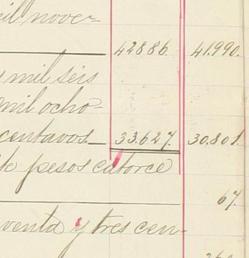 mil nover-
42886. 41.990.
y mil seis
mil ocho-
centavos 33.627. 30.801.
de pesos catorce
67.
venta y tres cen-